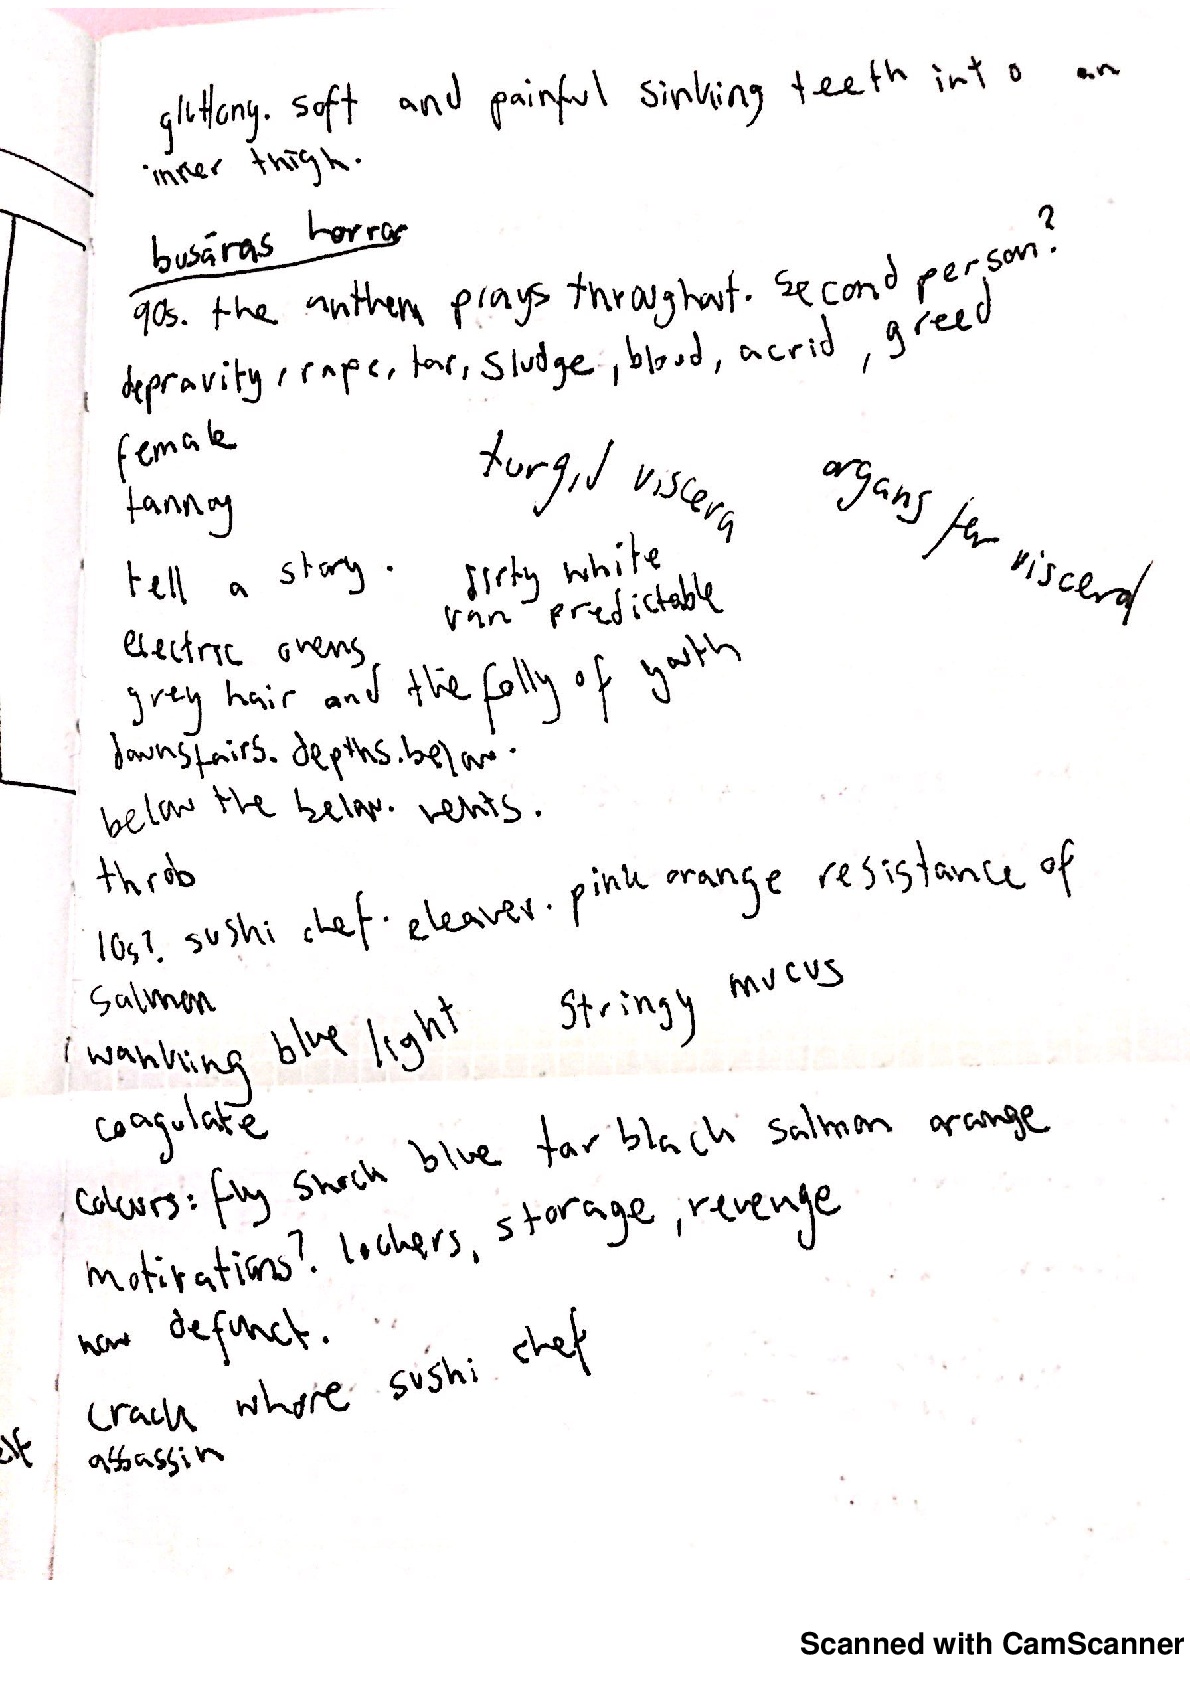 gluttony. soft and painful sinking teeth into an
inner thigh.
busáras horror
90s. the anthem plays throughout. second person?
depravity, rape, tar, sludge, blood, acrid, greed
female
tannoy
turgid viscera
organs for visceral
tell a story.
dirty white
van predictable
electric ovens,
grey hair and the folly of youth
downstairs. depths. below.
below the below. vents.
throb
10s?. sushi chef. cleaver. pink orange resistance of
salmon
wanking blue light
stringy mucus
coagulate
colours: fly shock blue tar black salmon orange
motivations? lockers, storage, revenge
now defunct.
crack whore sushi chef
assassin
Scanned with CamScanner